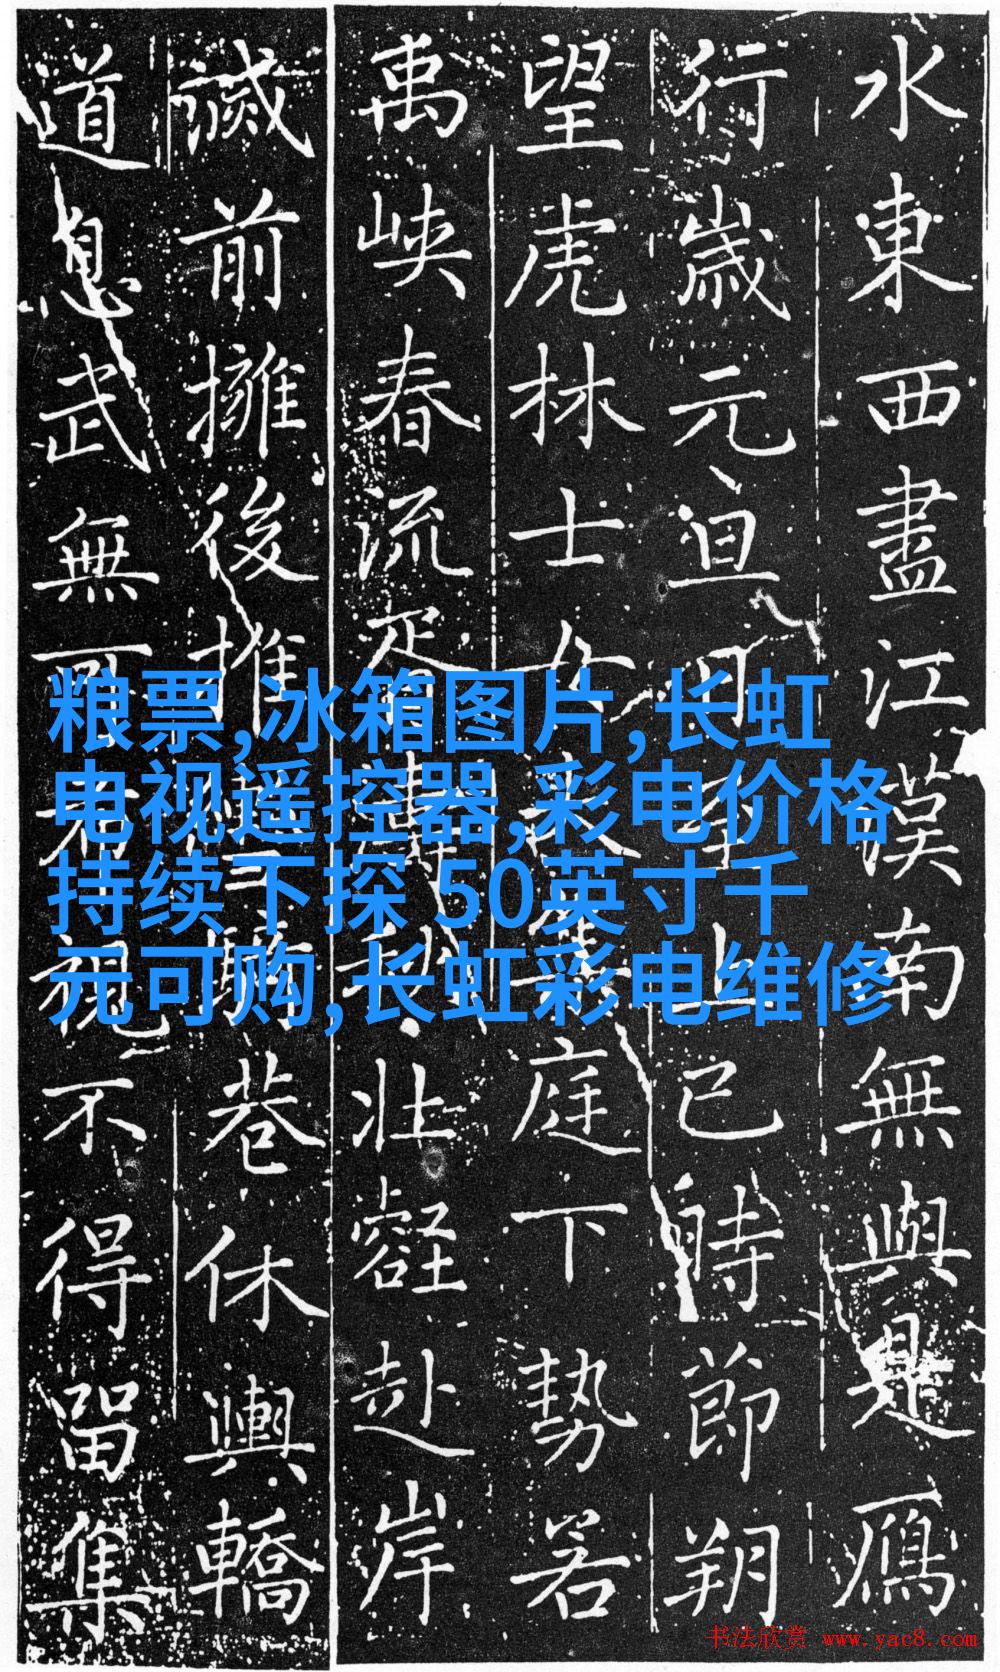 水東西盡江漢南無與是鴈
行歲元旦日至上巳時節朔
望虎林士女庭下勢若
禹峽春流壯壑赴岸
滅前擁後推巷休輿轎
道息武無可着視不得留集
粮票,冰箱图片,长虹
电视遥控器,彩电价格
持续下探 50英寸千
元可购,长虹彩电维修
书法欣赏 www.yac8.com